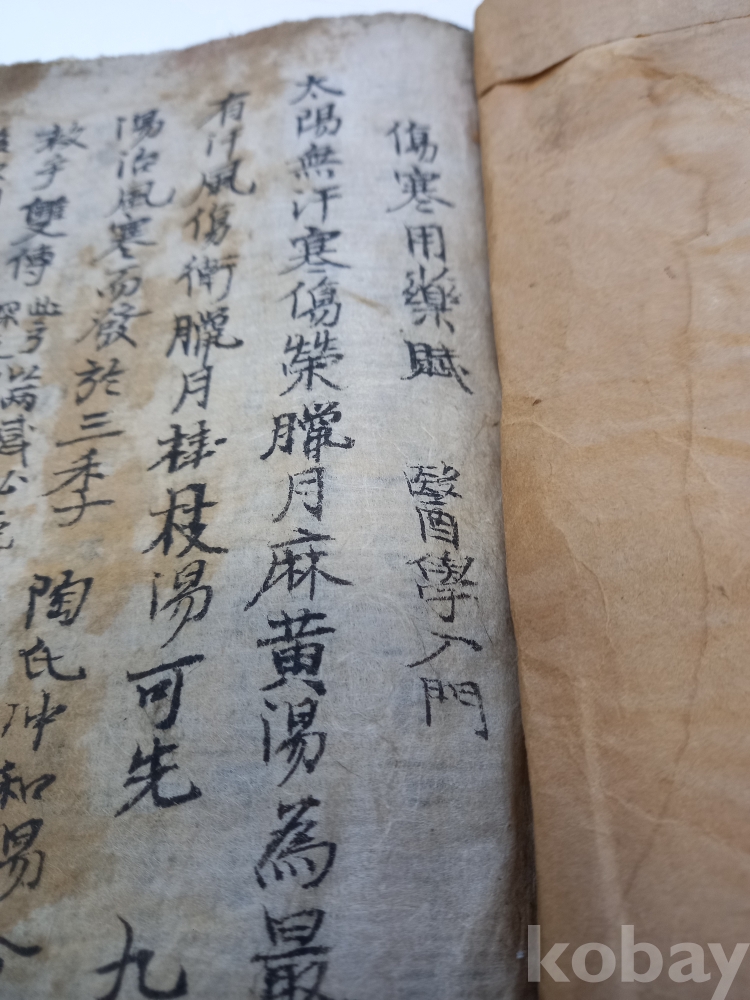 傷寒用藥賦 醫學入門
太陽無汗寒傷榮臘月麻黃湯為最
有汗風傷衛臘月桂枝湯可先 九
湯治風寒而發於三季 陶氏冲和湯
救乎雙傳
kobay